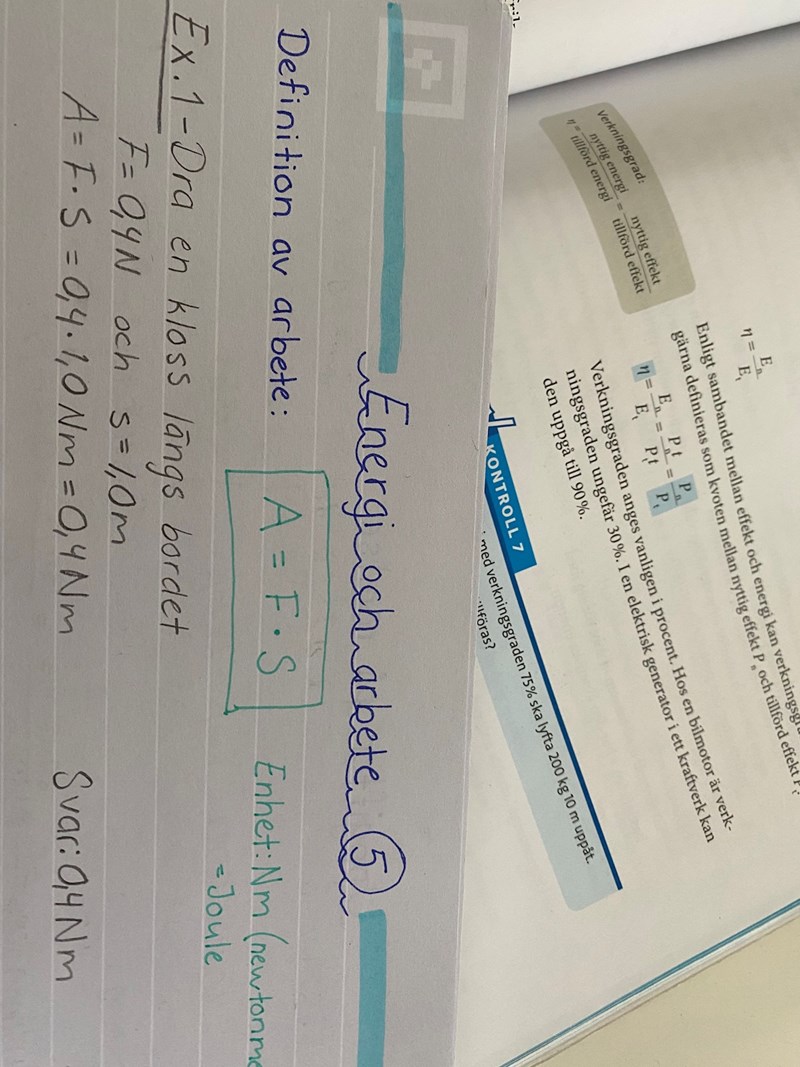 Energi och arbete 5
Definition av arbete: A = F · S Enhet: Nm
= Joule
Ex. 1 - Dra en kloss längs bordet
F = 0,4N och s = 1,0m
A = F · S = 0,4 · 1,0 Nm = 0,4 Nm Svar: 0,4 Nm
η = Eₙ / Eₜ
Enligt sambandet mellan effekt och energi kan
gärna definieras som kvoten mellan nyttig effekt Pₙ och tillförd effekt Pₜ
η = Eₙ / Eₜ = Pₙt / Pₜt = Pₙ / Pₜ
Verkningsgraden anges vanligen i procent. Hos en bilmotor är verk-
ningsgraden ungefär 30%. I en elektrisk generator i ett kraftverk kan
den uppgå till 90%.
Verkningsgrad:
η = nyttig energi / tillförd energi = nyttig effekt / tillförd effekt
KONTROLL 7
med verkningsgraden 75% ska lyfta 200 kg 10 m uppåt.